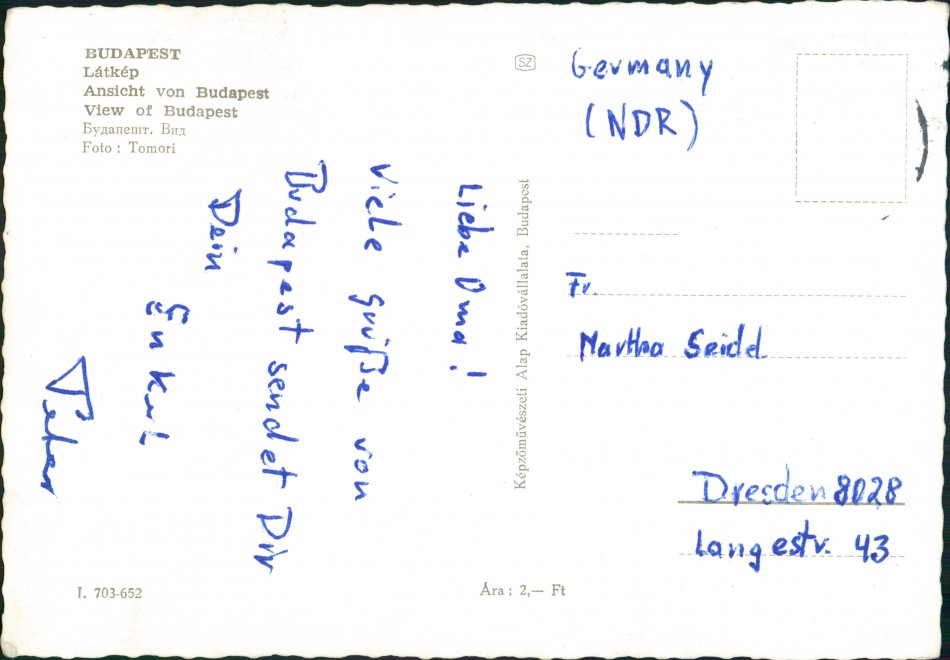 BUDAPEST
Látkép
Ansicht von Budapest
View of Budapest
Будапешт. Вид
Foto : Tomori
Liebe Oma!
Viele Grüße von
Budapest sendet Dir
Dein
Enkel
Peter
I. 703-652
Ára : 2,— Ft
Képzőművészeti Alap Kiadóvállalata, Budapest
SZ
Germany
(NDR)
Fr.
Martha Seidel
Dresden 8028
Langestr. 43